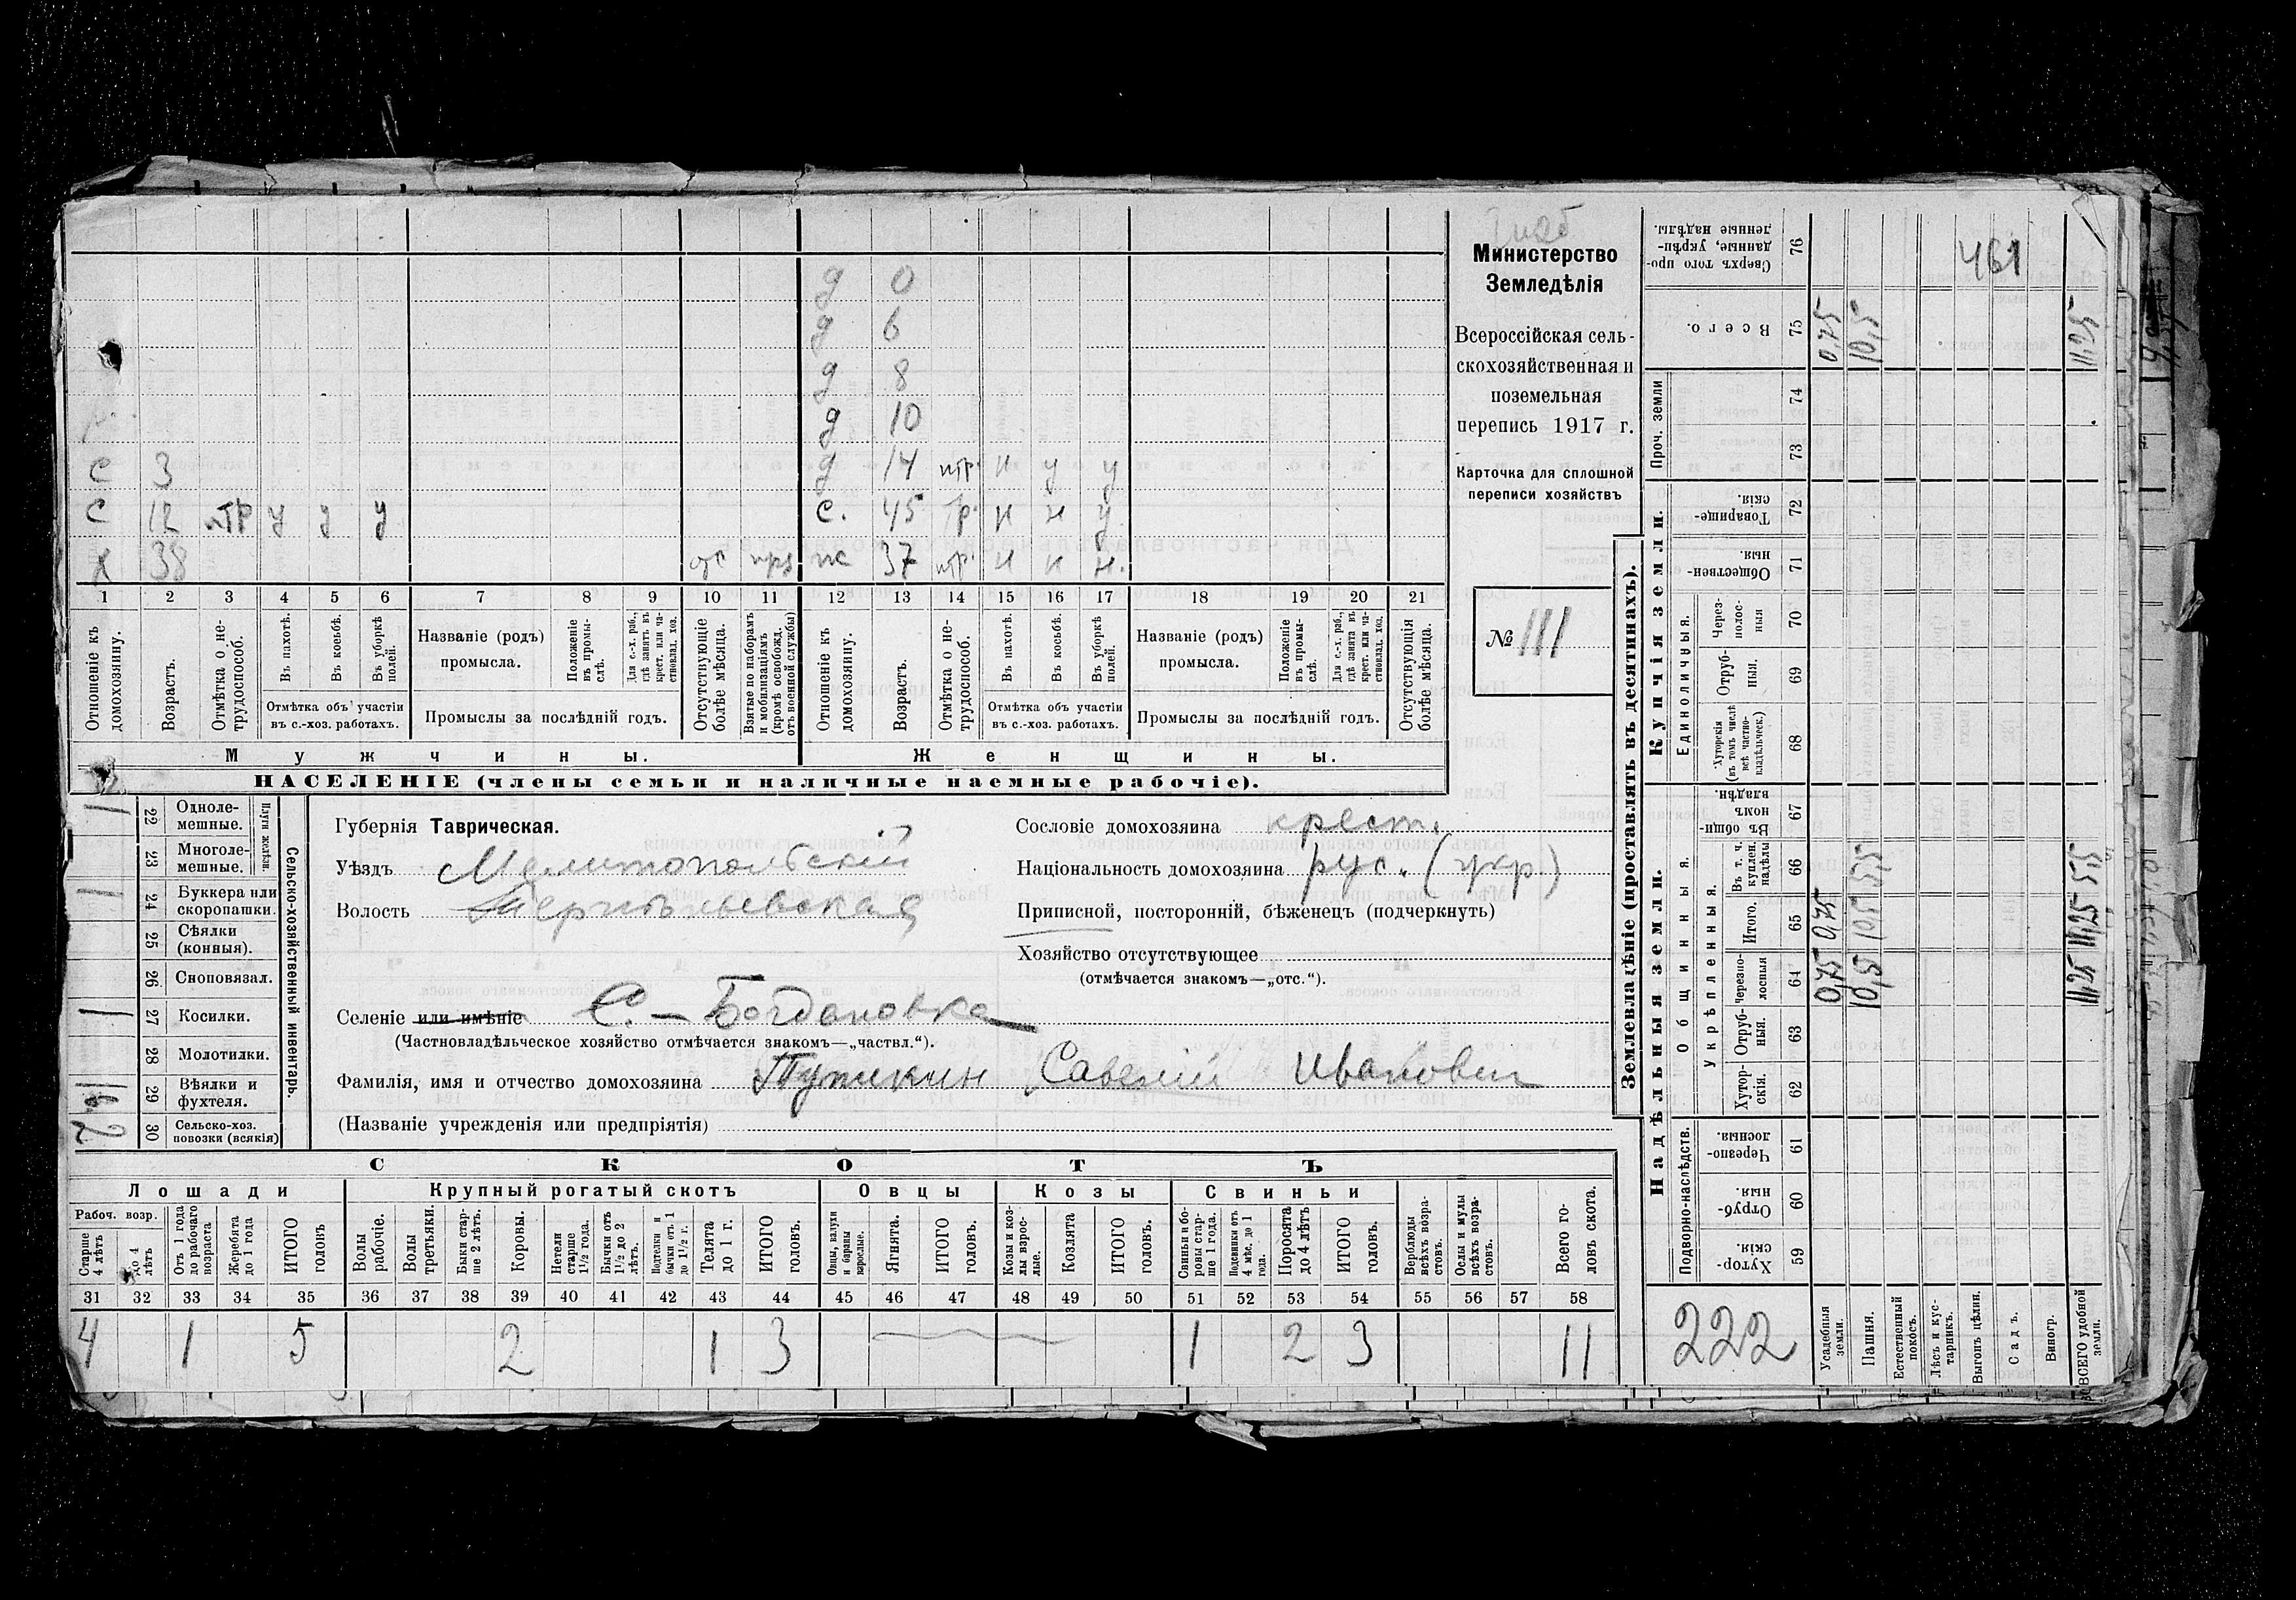 д 0
д 6
д 8
д 10
С 3 д 14 нтр. н у у
С 12 нтр у у у С. 45 тр. н н у
х 38 отс прз ж 37 нтр. н н н.
1 2 3 4 5 6 7 8 9 10 11 12 13 14 15 16 17 18 19 20 21
Отношеніе къ домохозяину.
Возрастъ.
Отмѣтка о нетрудоспособ.
Въ пахотѣ.
Въ косьбѣ.
Въ уборкѣ полей.
Отмѣтка объ участіи въ с.-хоз. работахъ.
Названіе (родъ) промысла.
Положеніе въ промыслѣ.
Для с.-х. раб., гдѣ занятъ въ крест. или частновлад. хоз.
Промыслы за послѣдній годъ.
Отсутствующіе болѣе мѣсяца.
Взятые по наборамъ и мобилизаціямъ (кромѣ освобожд. отъ военной службы)
Отношеніе къ домохозяину.
Возрастъ.
Отмѣтка о нетрудоспособ.
Въ пахотѣ.
Въ косьбѣ.
Въ уборкѣ полей.
Отмѣтка объ участіи въ с.-хоз. работахъ.
Названіе (родъ) промысла.
Положеніе въ промыслѣ.
Для с.-х. раб., гдѣ занята въ крест. или частновлад. хоз.
Промыслы за послѣдній годъ.
Отсутствующія болѣе мѣсяца.
Мужчины. Женщины.
НАСЕЛЕНІЕ (члены семьи и наличные наемные рабочіе).
Министерство
Земледѣлія
Всероссійская сель-
скохозяйственная и
поземельная
перепись 1917 г.
Карточка для сплошной
переписи хозяйствъ
№ 111
Сельско-хозяйственный инвентарь.
Плуги желѣзн.
22 Однолемешные. 1
23 Многолемешные.
24 Буккера или скоропашки. 1
25 Сѣялки (конныя).
26 Сноповязал.
27 Косилки. 1
28 Молотилки.
29 Вѣялки и фухтеля.
30 Сельско-хоз. повозки (всякія) 2
Губернія Таврическая.
Уѣздъ Мелитопольскій
Волость Терпѣньевская
Сословіе домохозяина крест.
Національность домохозяина рус. (укр.)
Приписной, посторонній, бѣженецъ (подчеркнуть)
Хозяйство отсутствующее
(отмѣчается знакомъ—„отс.“).
Селеніе или имѣніе С. - Богдановка
(Частновладѣльческое хозяйство отмѣчается знакомъ—„частвл.“).
Фамилія, имя и отчество домохозяина Савелій Иванович
(Названіе учрежденія или предпріятія)
СКОТЪ
Лошади Крупный рогатый скотъ Овцы Козы Свиньи
Рабоч. возр.
Старше 4 лѣтъ
до 4 лѣтъ
Отъ 1 года до рабочаго возраста
Жеребята до 1 года
ИТОГО головъ
Волы рабочіе.
Волы третьяки.
Быки старше 2 лѣтъ.
Коровы.
Нетели старше 1½ года.
Бычки отъ 1½ до 2 лѣтъ.
Подтелки и бычки отъ 1 до 1½ г.
Телята до 1 г.
ИТОГО головъ.
Овцы, валухи и бараны взрослые.
Ягнята.
ИТОГО головъ.
Козы и козлы взрослые.
Козлята
ИТОГО головъ.
Свиньи и боровы старше 1 года.
Подсвинки отъ 4 мѣс. до 1 года.
Поросята до 4 лѣтъ
ИТОГО головъ.
Верблюды всѣхъ возрастовъ.
Ослы и мулы всѣхъ возрастовъ.
Всего головъ скота.
31 32 33 34 35 36 37 38 39 40 41 42 43 44 45 46 47 48 49 50 51 52 53 54 55 56 57 58
4 1 5 2 1 3 1 2 3 11
Землевладѣніе (проставлять въ десятинахъ).
Купчія земли.
Проч. земли
Единоличныя.
Сверхъ того проданные, укрѣпленные надѣлы. 76
Всего. 75
74
73
Товарищескія. 72
Общественныя. 71
Черезполосныя 70
Отрубныя. 69
Хуторскія (въ томъ числѣ всѣ частновладѣльческ.) 68
Надѣльныя земли.
Общинныя.
Укрѣпленныя.
Въ общинномъ владѣн. 67
Въ т. ч. куплен. надѣлы 66
Итого. 65
Черезполосныя 64
Отрубныя. 63
Хуторскія. 62
Подворно-наслѣдств.
Черезполосныя. 61
Отрубныя. 60
Хуторскія. 59
222
461
Усадебныя земли. 0,75 0,75 0,75
Пашня. 10,5 10,5 5,5 10,5
Естественный покосъ.
Лѣсъ и кустарникъ.
Выгонъ цѣлин.
Садъ.
Виногр.
ВСЕГО удобной земли. 11,25 11,25 5,5 11,25